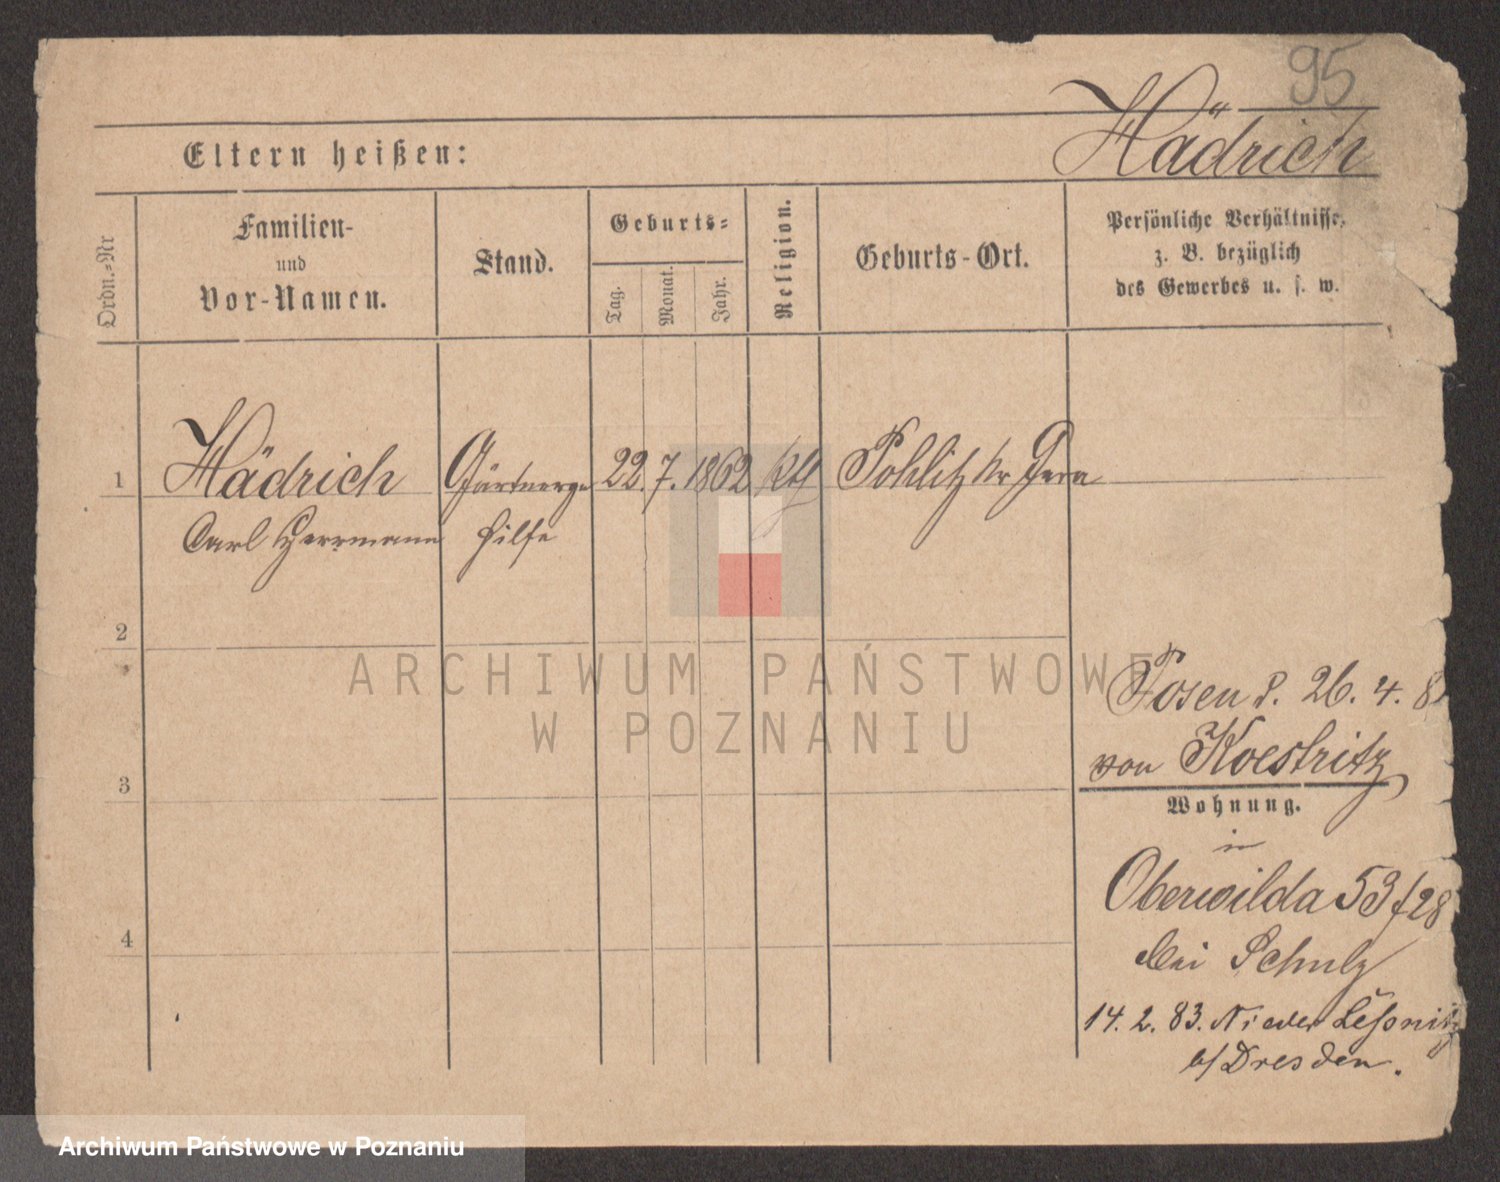 95
Hädrich
Eltern heißen:
Ordn.-Nr
Familien-
und
Vor-Namen.
Stand.
Geburts-
Tag.
Monat.
Jahr.
Religion.
Geburts-Ort.
Persönliche Verhältnisse,
z. B. bezüglich
des Gewerbes u. s. w.
1 Hädrich Gärtnerge 22. 7. 1862 Pohlitz Kr Gera
Carl Herrmann hilfe
2
ARCHIWUM PAŃSTWOWE
W POZNANIU
Posen d. 26. 4. 8
von Koestritz
3
Wohnung.
in
Oberwilda 53 f 28
bei Schulz
4
14. 2. 83. Nieder Lößnitz
b/ Dresden.
Archiwum Państwowe w Poznaniu